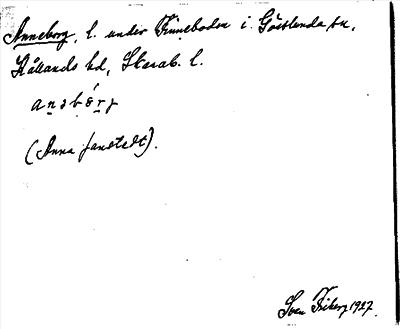 Anneborg, l. under Finneboda i Göslunda sn,
Kållands hd, Skarab. l.
anəbórj
(Anna Janstedt).
Sven Friberg 1927.